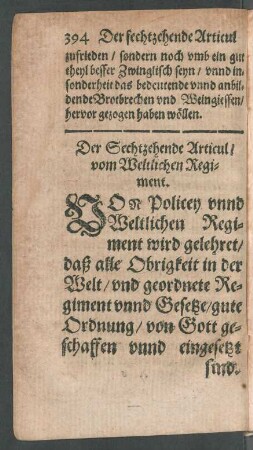 394 Der sechtzehende Articul
zufrieden / sondern noch vmb ein gut
theyl besser Zwinglisch seyn / vnnd in-
sonderheit das bedeutende vnnd anbil-
dende Brotbrechen vnd Weingiessen /
hervor gezogen haben wöllen.
Der Sechtzehende Articul /
vom Weltlichen Regi-
ment.
VON Policey vnnd
Weltlichen Regi-
ment wird gelehret /
daß alle Obrigkeit in der
Welt / vnd geordnete Re-
giment vnnd Gesetze / gute
Ordnung / von Gott ge-
schaffen vnnd eingesetzt
sind.